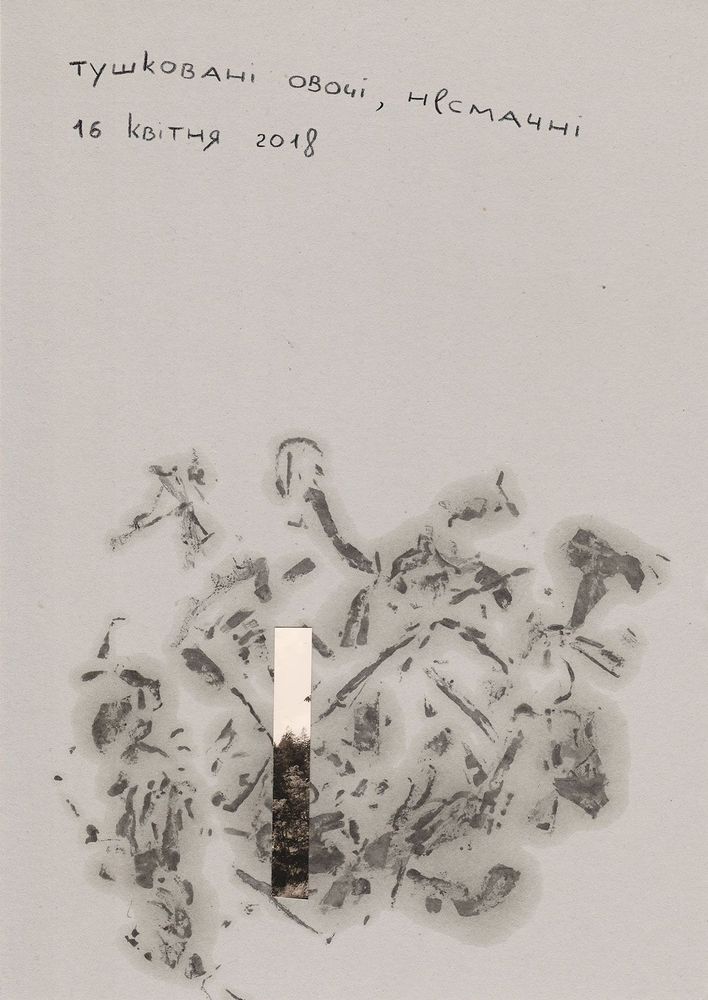 тушковані овочі, несмачні
16 квітня 2018